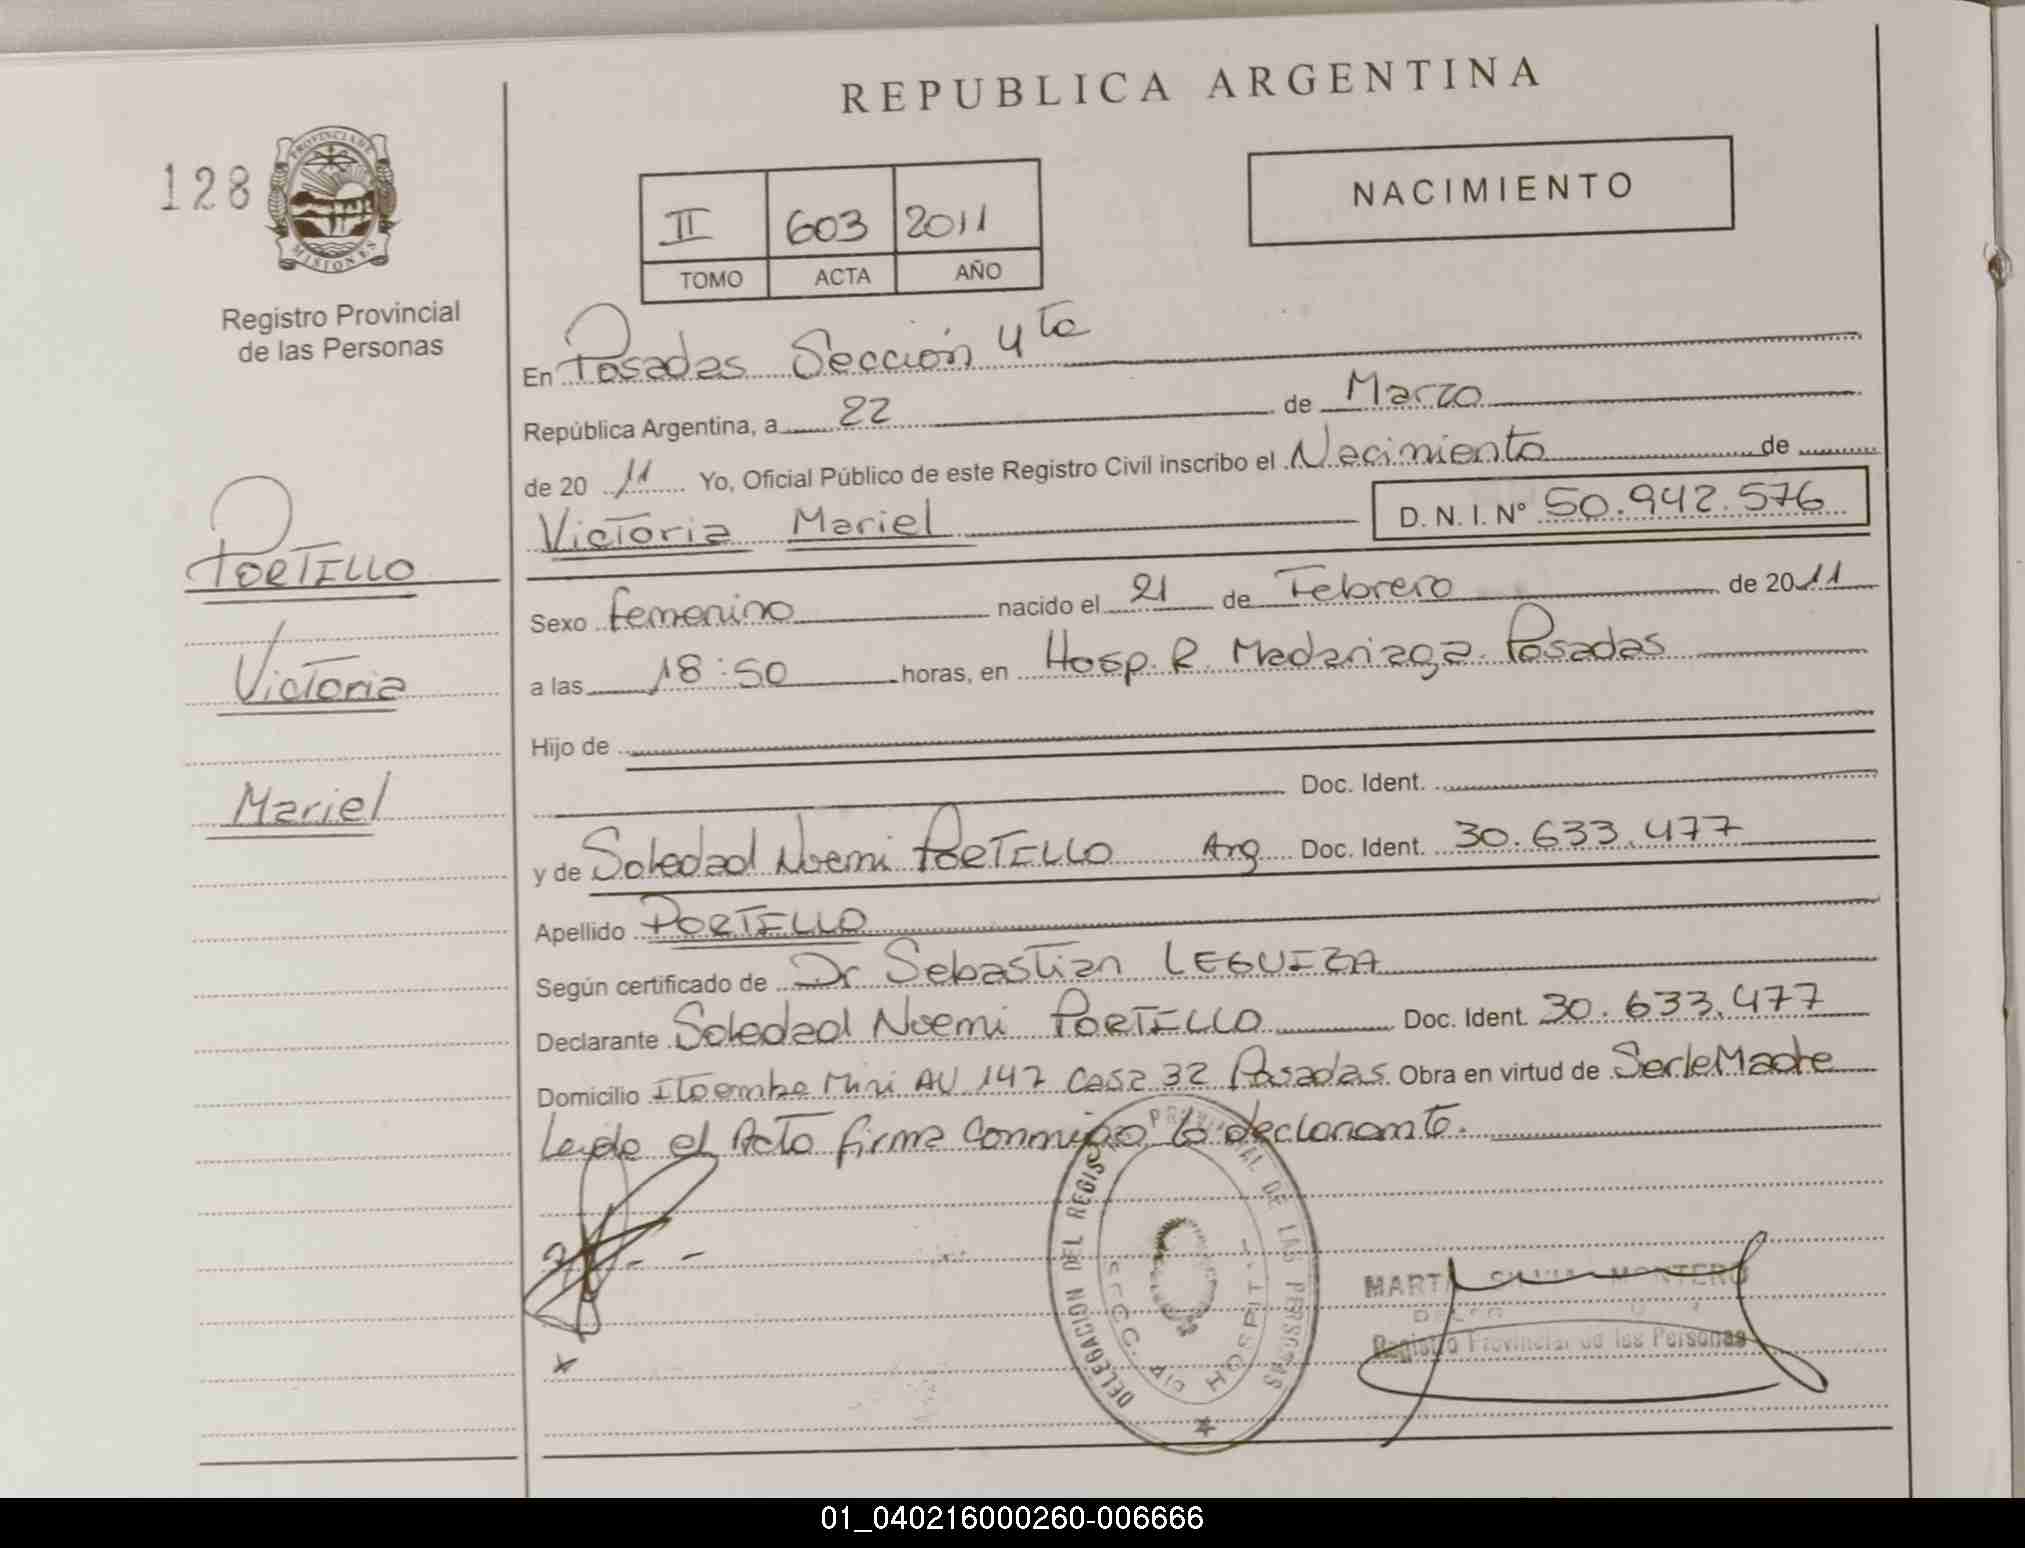 REPUBLICA ARGENTINA
128
PROVINCIA DE
MISIONES
Registro Provincial
de las Personas
II 603 2011
TOMO ACTA AÑO
NACIMIENTO
En Posadas Sección 4ta
República Argentina, a 22 de Marzo
de 20 11 Yo, Oficial Público de este Registro Civil inscribo el Nacimiento de
Victoria Mariel D. N. I. Nº 50.942.576
PORTILLO
Victoria
Mariel
Sexo femenino nacido el 21 de Febrero de 2011
a las 18:50 horas, en Hosp. R. Madariaga. Posadas
Hijo de
Doc. Ident.
y de Soledad Noemi PORTILLO Arg Doc. Ident. 30.633.477
Apellido PORTILLO
Según certificado de Dr Sebastian LEGUIZA
Declarante Soledad Noemi PORTILLO Doc. Ident. 30.633.477
Domicilio Itaembe Mini AV 147 Casa 32 Posadas. Obra en virtud de Serle Madre
Leida el Acta firma conmigo la declarante.
DELEGACION DEL REGISTRO PROVINCIAL DE LAS PERSONAS
SECC. 4ta HOSPIT
MARTA SILVIA MONTERO
Registro Provincial de las Personas
01_040216000260-006666